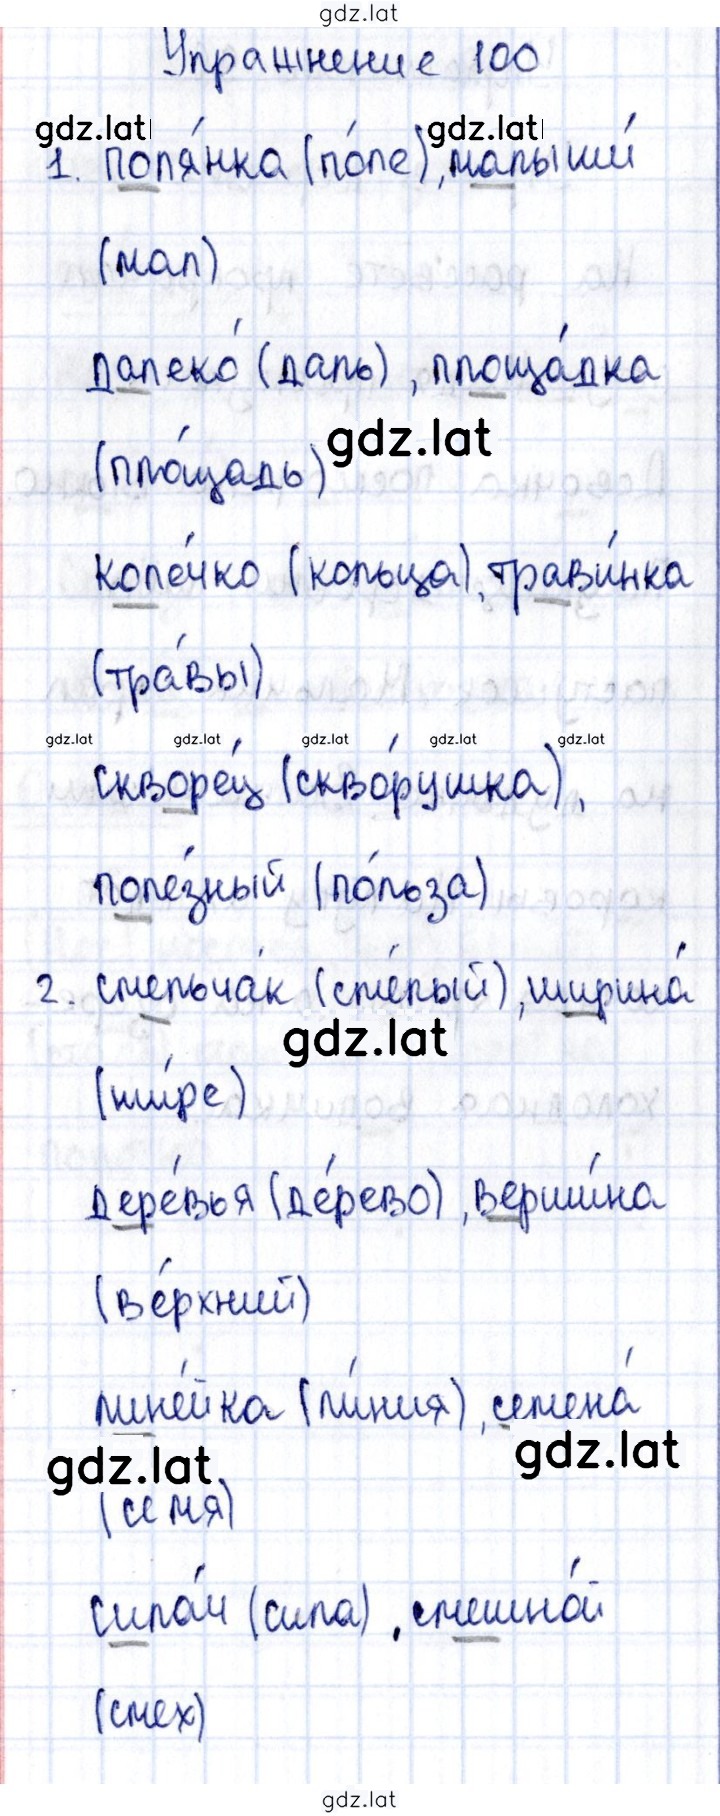 gdz.lat
Упражнение 100
gdz.lat gdz.lat
1. поля́нка (по́ле), малыши́
(мал)
далеко́ (даль), площа́дка
gdz.lat
(пло́щадь)
коле́чко (кольца), трави́нка
(тра́вы)
gdz.lat gdz.lat gdz.lat gdz.lat gdz.lat
скворе́ц (скво́рушка),
поле́зный (по́льза)
2. смельча́к (сме́лый), ширина́
gdz.lat
(ши́ре)
дере́вья (де́рево), верши́на
(ве́рхний)
лине́йка (ли́ния), семена́
gdz.lat gdz.lat
(семя)
сила́ч (сила), смешно́й
(смех)
gdz.lat